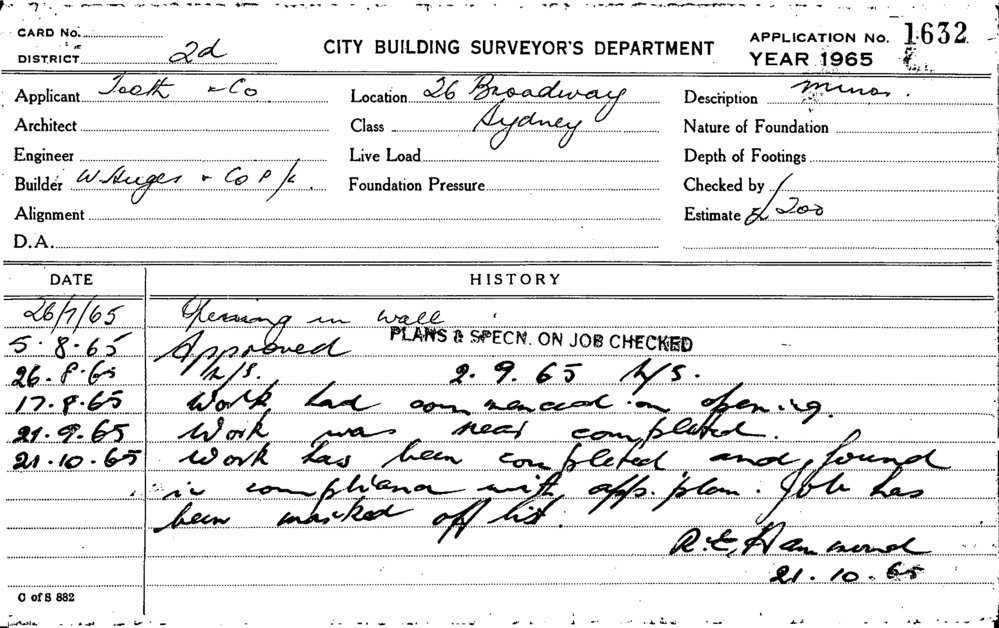 CARD No.
DISTRICT 2d
CITY BUILDING SURVEYOR'S DEPARTMENT
APPLICATION No. 1632
YEAR 1965
Applicant Tooth & Co
Location 26 Broadway
Description minor.
Architect
Class Sydney
Nature of Foundation
Engineer
Live Load
Depth of Footings
Builder W Huges & Co P/L.
Foundation Pressure
Checked by
Alignment
Estimate £200
D.A.
DATE HISTORY
26/7/65 Opening in wall
PLANS & SPECN. ON JOB CHECKED
5.8.65 Approved
26.8.65 h/s. 2.9.65 h/s.
17.9.65 Work had commenced on opening.
21.9.65 Work was near completed.
21.10.65 Work has been completed and found
in compliance with app. plan. Job has
been marked off list.
R.E. Hammond
21.10.65
C of S 882